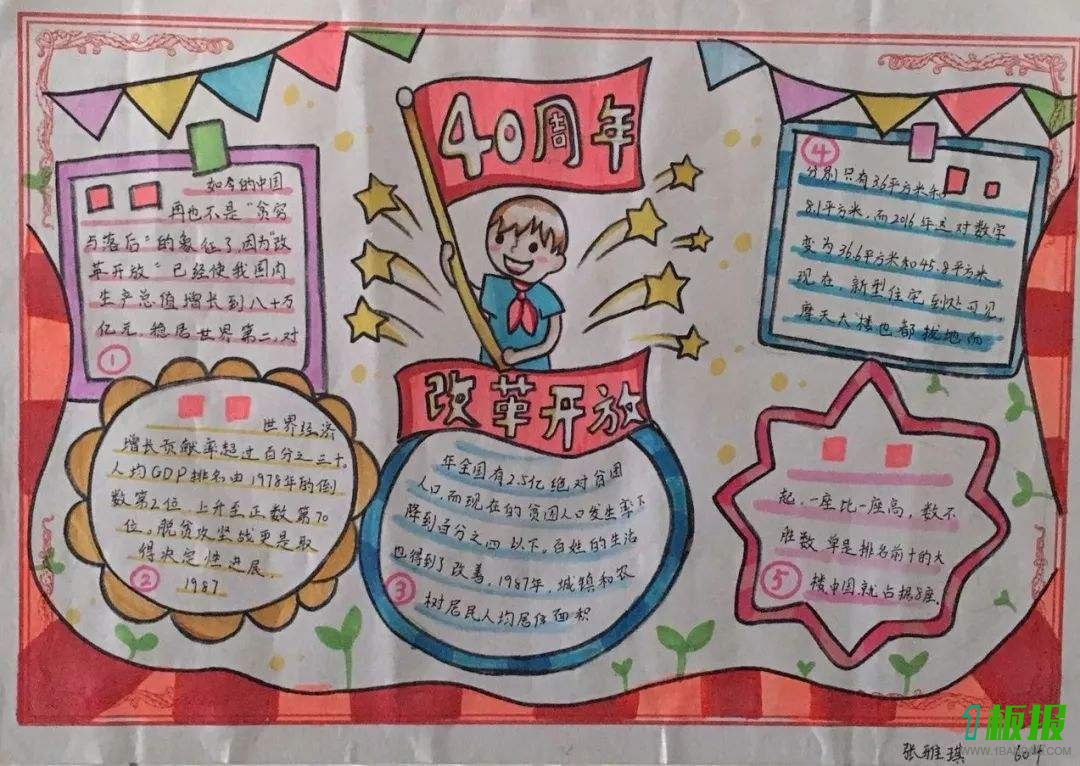 40周年
改革开放
如今的中国
再也不是“贫穷
与落后”的象征了因为“改
革开放”已经使我国内
生产总值增长到八十万
亿元，稳居世界第二，对
①
世界经济
增长贡献率超过百分之三十。
人均GDP排名由1978年的倒
数第2位，上升至正数第70
位。脱贫攻坚战更是取
得决定性进展。
1987
②
年全国有2.5亿绝对贫困
人口，而现在的贫困人口发生率下
降到百分之四以下。百姓的生活
也得到了改善，1987年，城镇和农
村居民人均居住面积
③
④
分别只有3.6平方米和
8.1平方米，而2016年这一对数字
变为36.6平方米和45.8平方米
现在，新型住宅到处可见，
摩天大楼也都拔地而
起，一座比一座高，数不
胜数，单是排名前十的大
楼中国就占据8座。
⑤
张雅琪
1板报
WWW.1BANBAO.COM